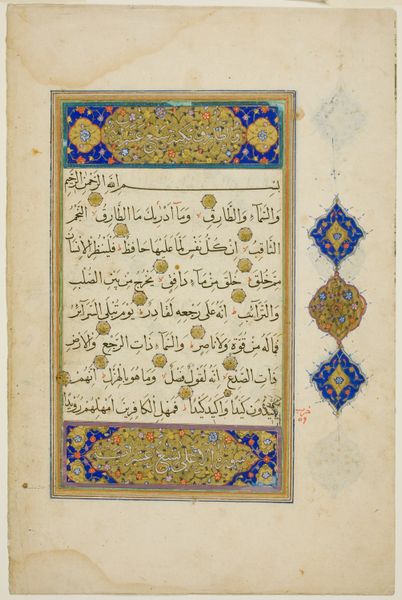 بِسْمِ اللَّهِ الرَّحْمَنِ الرَّحِيمِ
وَالسَّمَاءِ وَالطَّارِقِ وَمَا أَدْرِيكَ مَا الطَّارِقُ النَّجْمُ
الثَّاقِبُ إِنْ كُلُّ نَفْسٍ لَمَّا عَلَيْهَا حَافِظٌ فَلْيَنْظُرِ الْإِنْسَانُ
مِمَّ خُلِقَ خُلِقَ مِنْ مَاءٍ دَافِقٍ يَخْرُجُ مِنْ بَيْنِ الصُّلْبِ
وَالتَّرَائِبِ إِنَّهُ عَلَى رَجْعِهِ لَقَادِرٌ يَوْمَ تُبْلَى السَّرَائِرُ
فَمَا لَهُ مِنْ قُوَّةٍ وَلَا نَاصِرٍ وَالسَّمَاءِ ذَاتِ الرَّجْعِ وَالْأَرْضِ
ذَاتِ الصَّدْعِ إِنَّهُ لَقَوْلٌ فَصْلٌ وَمَا هُوَ بِالْهَزْلِ إِنَّهُمْ
يَكِيدُونَ كَيْدًا وَأَكِيدُ كَيْدًا فَمَهِّلِ الْكَافِرِينَ أَمْهِلْهُمْ رُوَيْدًا
سورة الاعلى تسع